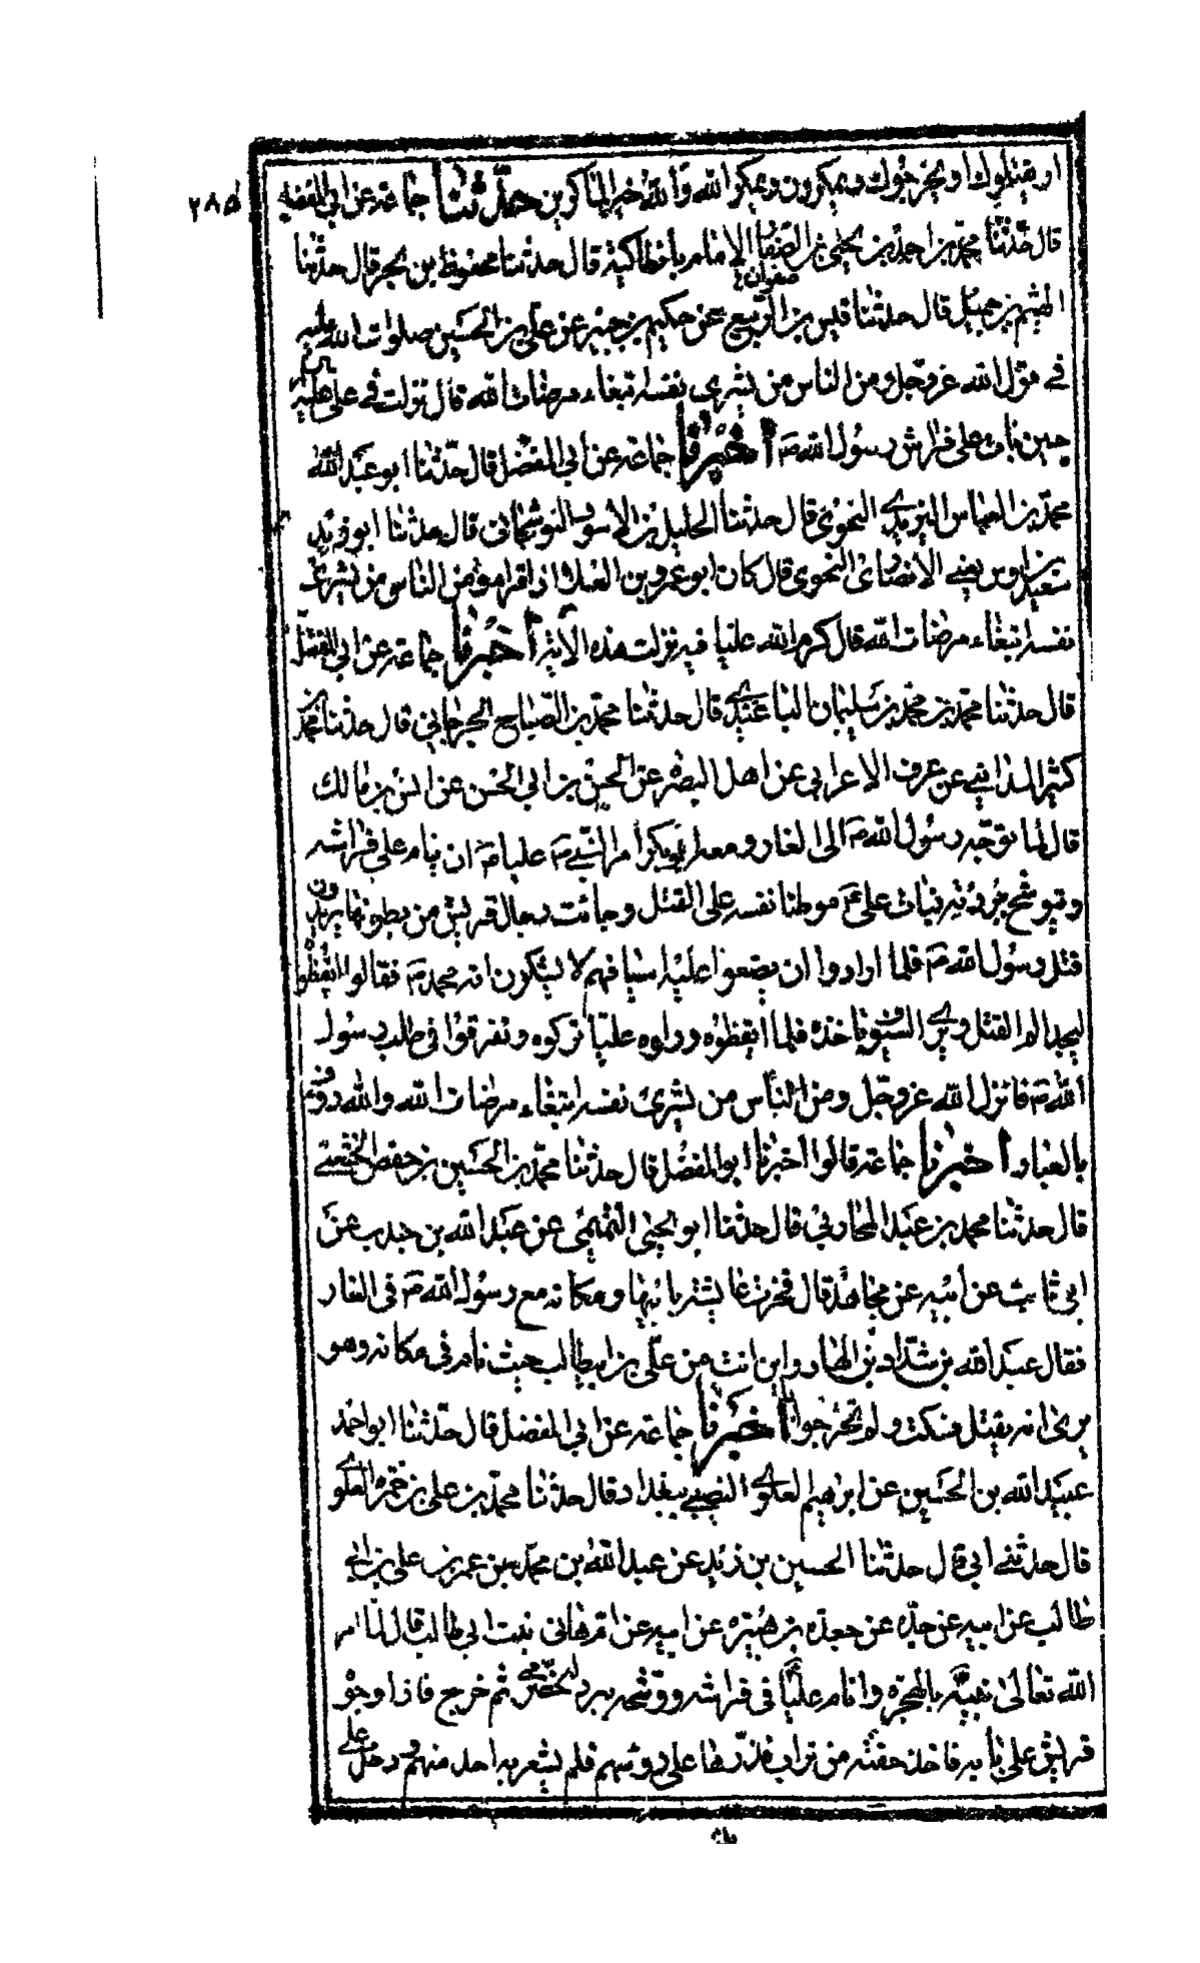 ۲۸۵
او يقتلوك او يخرجوك ويمكرون ويمكر الله والله خير الماكرين حدثنا جماعة عن ابي المفضل
قال حدثنا محمد بن احمد بن يحيى بن الصفوان الامام بانطاكية قال حدثنا محفوظ بن بحر قال حدثنا
صفوان
الهيثم بن جميل قال حدثنا قيس بن الربيع عن حكيم بن جبير عن علي بن الحسين صلوات الله عليه
في قول الله عز وجل ومن الناس من يشرى نفسه ابتغاء مرضات الله قال نزلت في على عليه السلام
حين بات على فراش رسول الله ص أخبرنا جماعة عن أبي المفضل قال حدثنا ابو عبد الله
محمد بن العباس اليزيدي النحوى قال حدثنا الخليل بن الاسود النوشجاني قال حدثنا ابو زيد
سعيد بن اوس يعنى الانصارى النحوى قال كان ابو عمرو بن العلا اذا قرا ومن الناس من يشرى
نفسه ابتغاء مرضات الله قال كرم الله عليا فيه نزلت هذه الاية أخبرنا جماعة عن ابي المفضل
قال حدثنا محمد بن محمد بن سليمان الباغندي قال حدثنا محمد بن الصباح الجرجاني قال حدثنا محمد بن
كثير المدائني عن عوف الاعرابي عن اهل البصرة عن الحسن بن ابي الحسن عن انس بن مالك
قال لما توجه رسول الله ص الى الغار ومعه ابو بكر امر النبي ص عليا ص ان ينام على فراشه
ويتوشح ببردته فبات على ع موطنا نفسه على القتل وجائت رجال قريش من بطونها يريدون
قتل رسول الله ص فلما ارادوا ان يضعوا عليه اسيافهم لا يشكون انه محمد ص فقالوا ايقظوه
ليجد الم القتل ويرى السيوف تاخذه فلما ايقظوه وراوه عليا تركوه وتفرقوا في طلب رسول
الله ص فانزل الله عز وجل ومن الناس من يشرى نفسه ابتغاء مرضات الله والله رؤف
بالعباد أخبرنا جماعة قالوا اخبرنا ابو المفضل قال حدثنا محمد بن الحسين بن حفص الخثعمى
قال حدثنا محمد بن عبد المحاربي قال حدثنا ابو يحيى التميمى عن عبد الله بن جندب عن
ابي ثابت عن أبيه عن مجاهد قال فخرت عايشة بابيها ومكانه مع رسول الله ص في الغار
فقال عبد الله بن شداد بن الهاد واين انت من علي بن ابيطالب حيث نام في مكانه وهو
يرى انه يقتل فسكتت ولم تحر جوابا أخبرنا جماعة عن ابي المفضل قال حدثنا ابو احمد
عبيد الله بن الحسين عن ابرهيم العلوي النصيبي ببغداد قال حدثنا محمد بن على بن حمزة العلوي
قال حدثنى ابي قال حدثنا الحسين بن زيد عن عبد الله بن محمد بن عمر بن على بن ابي
طالب عن ابيه عن جده عن جعدة بن هبيرة عن ابيه عن ام هانى بنت ابي طالب قال لما امر
الله تعالى نبيه بالهجرة وانام عليا في فراشه ووشحه ببرد له حضرمى ثم خرج فاذا وجوه
قريش على بابه فاخذ حفنة من تراب فذرها على روسهم فلم يشعر به احد منهم ودخل على